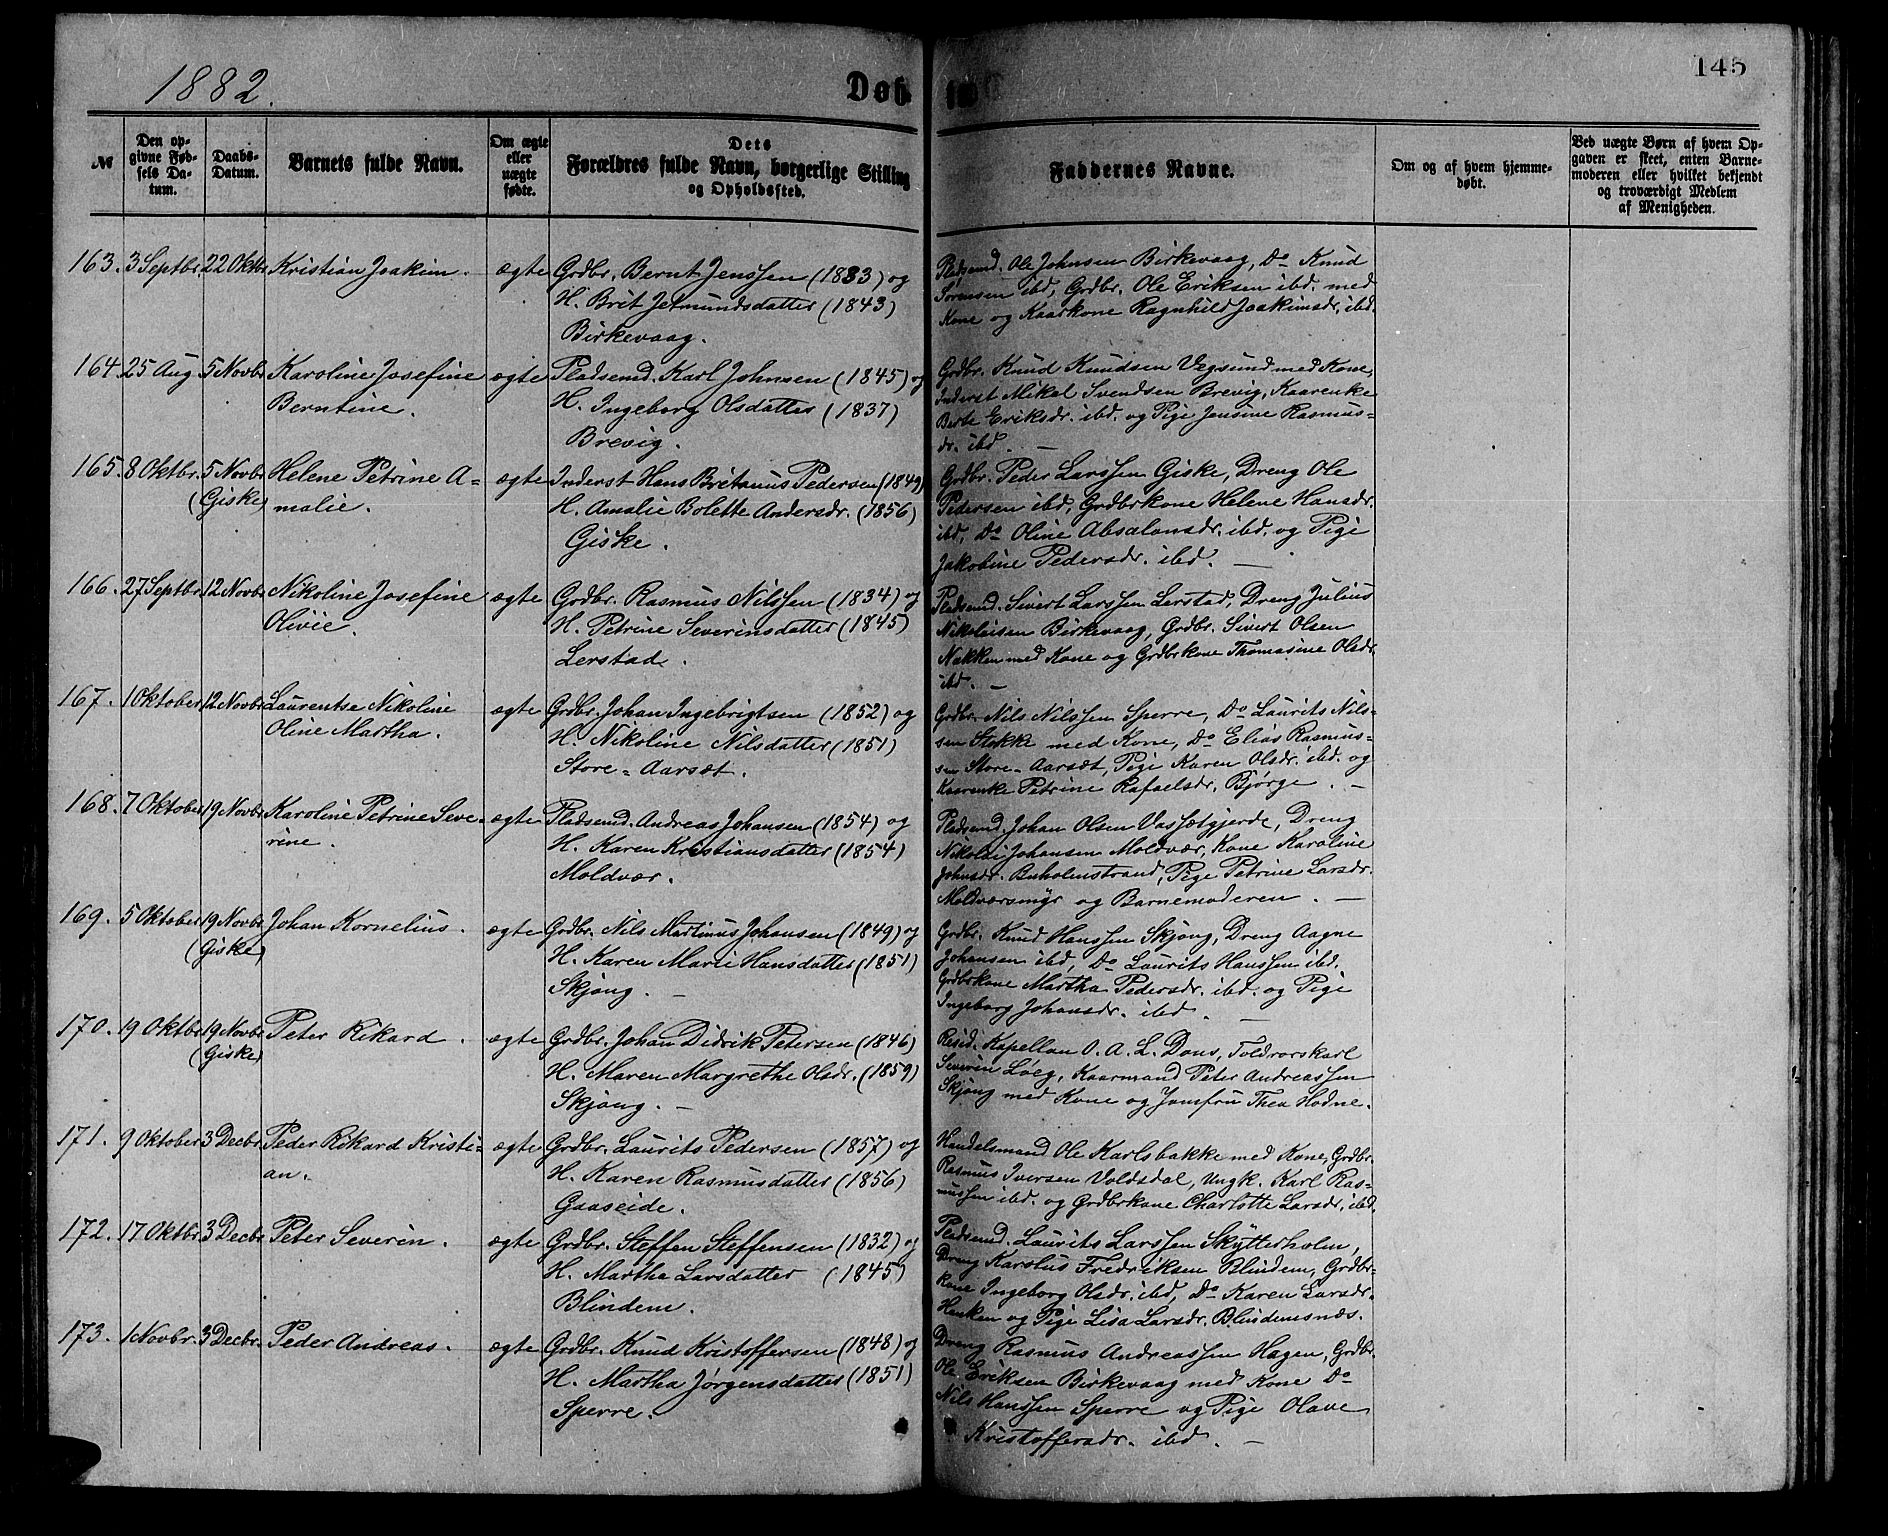 1882.
Døb
145
№
Den op-
givne Fød-
sels Da-
tum.
Daabs-
Datum.
Barnets fulde Navn.
Om ægte
eller
uægte
fødte.
Dets
Forældres fulde Navn, borgerlige Stilling
og Opholdssted.
Faddernes Navne.
Om og af hvem hjemme-
døbt.
Ved uægte Børn af hvem Op-
gaven er skeet, enten Barne-
moderen eller hvilket bekjendt
og troværdigt Medlem
af Menigheden.
163. 3 Septbr. 22 Oktbr. Kristian Joakim. ægte Grdbr. Bernt Jenssen (1833) og
H. Brit Jetmundsdatter (1843)
Birkevaag.
Pladsmd. Ole Johnsen Birkevaag, Do Knud
Sørensen ibd, Grdbr. Ole Eriksen ibd. med
Kone og Kaarkone Ragnhild Joakimsdr. ibd.
164. 25 Aug. 5 Novbr. Karoline Josefine ægte Pladsmd. Karl Johnsen (1845) og
Berntine. H. Ingeborg Olsdatter (1837)
Brevig.
Grdbr. Knud Knudsen Vegsund med Kone,
Inderst Mikal Svendsen Brevig, Kaarenke
Berte Eriksdr. ibd. og Pige Jensine Rasmus-
dr. ibd. —
165. 8 Oktbr. 5 Novbr. Helene Petrine A- ægte Inderst Hans Britanus Pedersen (1849)
(Giske) malie. H. Amalie Bolette Andersdr. (1856)
Giske.
Grdbr. Peder Larssen Giske, Dreng Ole
Pedersen ibd, Grdbrkone Helene Hansdr.
ibd, Do Oline Absalonsdr. ibd. og Pige
Jakobine Pedersdr. ibd. —
166. 27 Septbr. 12 Novbr. Nikoline Josefine ægte Grdbr. Rasmus Nilssen (1834) og
Olivie. H. Petrine Severinsdatter (1845)
Lerstad.
Pladsmd. Sivert Larssen Lerstad, Dreng Julius
Nikolaisen Birkevaag, Grdbr. Sivert Olsen
Nakken med Kone og Grdbrkone Thomasine Olsdr.
ibd. —
167. 1 Oktober 12 Novbr. Laurentse Nikoline ægte Grdbr. Johan Ingebrigtsen (1852) og
Oline Martha. H. Nikoline Nilsdatter (1851)
Store-Aarsæt.
Grdbr. Nils Nilssen Sperre, Do Laurits Nils-
sen Stokke med Kone, Do Elias Rasmus-
sen Store-Aarsæt, Pige Karen Olsdr. ibd. og
Kaarenke Petrine Rafaelsdr. Bjørge. —
168. 7 Oktober 19 Novbr. Karoline Petrine Seve- ægte Pladsmd. Andreas Johansen (1854) og
rine. H. Karen Kristiansdatter (1854)
Moldvær.
Pladsmd. Johan Olsen Vassætgjerde, Dreng
Nikolai Johansen Moldvær, Kone Karoline
Johnsdr. Buholmstrand, Pige Petrine Larsdr.
Moldværsmyr og Barnemoderen. —
169. 5 Oktober 19 Novbr. Johan Kornelius. ægte Grdbr. Nils Martinus Johansen (1849) og
(Giske) H. Karen Marie Hansdatter (1851)
Skjong. —
Grdbr. Knud Hanssen Skjong, Dreng Aagne
Johansen ibd, Do Laurits Hanssen ibd.
Grdbrkone Martha Pedersdr. ibd. og Pige
Ingeborg Johansdr. ibd. —
170. 19 Oktbr. 19 Novbr. Peter Rikard. ægte Grdbr. Johan Didrik Petersen (1846)
(Giske) H. Maren Margrethe Olsdr. (1859)
Skjong. —
Resid. Kapellan O. A. L. Dons, Toldrorskarl
Severin Loeg, Kaarmand Peter Andreassen
Skjong med Kone og Jomfru Thea Hodne.
171. 9 Oktober 3 Decbr. Peder Rikard Kristi- ægte Grdbr. Laurits Pedersen (1857) og
an. H. Karen Rasmusdatter (1856)
Gaaseide.
Handelsmand Ole Karlsbakke med Kone, Grdbr.
Rasmus Iversen Voldsdal, Ungk. Karl Ras-
mussen ibd. og Grdbrkone Charlotte Larsdr. ibd.
172. 17 Oktbr. 3 Decbr. Peter Severin. ægte Grdbr. Steffen Steffensen (1832) og
H. Marthe Larsdatter (1845)
Blindem.
Pladsmd. Laurits Larssen Skytterholm,
Dreng Karolus Fredriksen Blindem, Grdbr-
kone Ingeborg Olsdr. ibd, Do Karen Larsdr.
Hanken og Pige Lisa Larsdr. Blindemsnæs.
173. 1 Novbr. 3 Decbr. Peder Andreas. ægte Grdbr. Knud Kristoffersen (1848) og
H. Martha Jørgensdatter (1851)
Sperre.
Dreng Rasmus Andreassen Hagen, Grdbr.
Ole Eriksen Birkevaag med Kone Do
Nils Hanssen Sperre og Pige Olave
Kristoffersdr. ibd. —